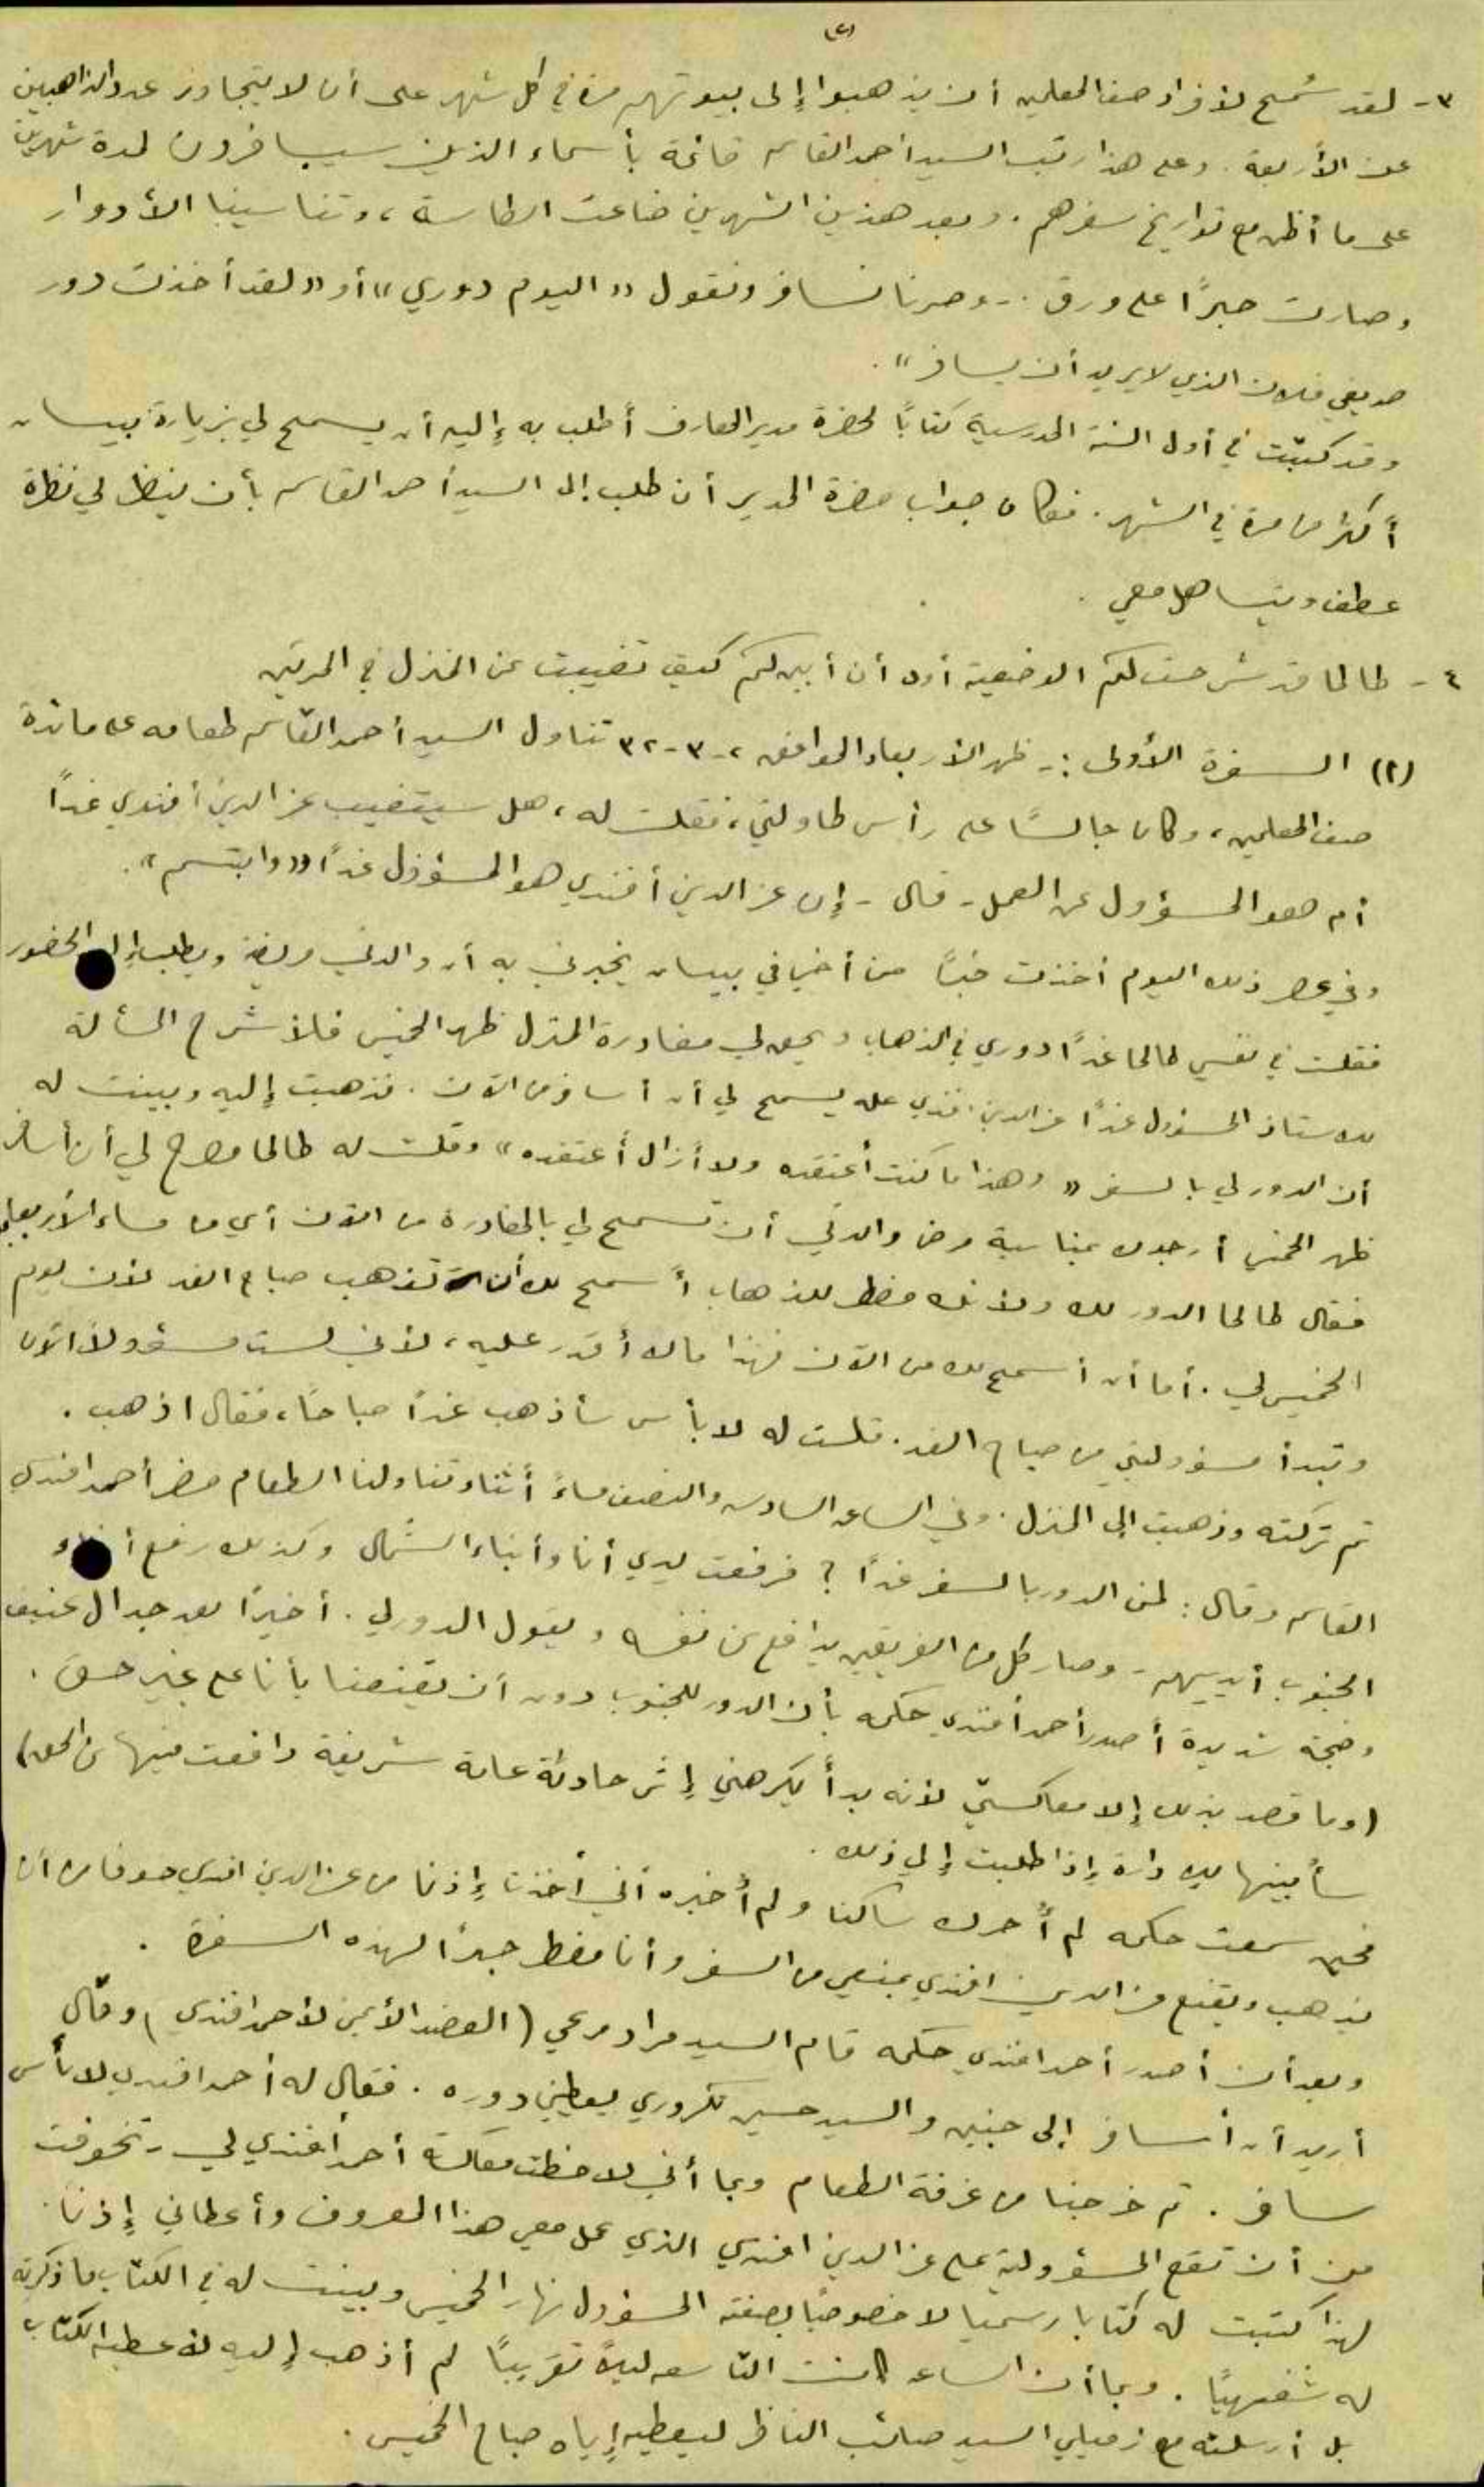 (٢)
٣- لقد سُمح لأفراد صف المعلمين أن يذهبوا إلى بيوتهم مرة في كل شهر على أن لا يتجاوز عدد الذاهبين
عن الأربعة. وعلى هذا رتب السيد أحمد القاسم قائمة بأسماء الذين سيسافرون لمدة شهرين
على ما أظن مع تواريخ سفرهم. وبعد هذين الشهرين ضاعت الطاسة، وتناسينا الأدوار
وصارت حبرًا على ورق. - وصرنا نسافر ونقول "اليوم دوري" أو "لقد أخذت دور
صديقي فلان الذي لا يريد أن يسافر".
وقد كتبت في أول السنة المدرسية كتابًا لحضرة مدير المعارف أطلب به إليه أن يسمح لي بزيارة بيسان
أكثر من مرة في الشهر. فكان جواب حضرة المدير أن طلب إلى السيد أحمد القاسم بأن ينظر لي نظرة
عطف ويتساهل معي.
٤- طالما قد شرحت لكم الوضعية أود أن أبين لكم كيف تغيبت عن المنزل في المرتين
(٢) السفرة الأولى :- ظهر الأربعاء الموافق ٢-٣-٣٢ تناول السيد أحمد القاسم طعامه على مائدة
صف المعلمين، وكان جالسًا على رأس طاولتي، فقلت له، هل سيتغيب عز الدين أفندي غدًا
أم هو المسؤول عن العمل - قال - إن عز الدين أفندي هو المسؤول غدًا "وابتسم".
وفي عصر ذلك اليوم أخذت خبرًا من أخي في بيسان يخبرني به أن والدتي مريضة ويطلب إلي الحضور
فقلت في نفسي طالما غدًا دوري في الذهاب ويحق لي مغادرة المنزل ظهر الخميس فلأشرح المسألة
للاستاذ المسؤول غدًا عز الدين افندي عله يسمح لي أن أسافر من الآن. فذهبت إليه وبينت له
أن الدور لي بالسفر "وهذا ما كنت أعتقده ولا أزال أعتقده" وقلت له طالما مصرح لي أن أسافر
ظهر الخميس أرجوك بمناسبة مرض والدتي أن تسمح لي بالمغادرة من الآن أي من مساء الأربعاء
فقال طالما الدور لك ولأنك مضطر للذهاب أسمح لك أن تذهب صباح الغد لأن يوم
الخميس لي. أما أن أسمح لك من الآن فهذا ما لا أقدر عليه، لأني لست مسؤولاً الآن
وتبدأ مسؤوليتي من صباح الغد. قلت له لا بأس سأذهب غدًا صباحًا، فقال اذهب.
ثم تركته وذهبت إلى المنزل. وفي الساعة السادسة والنصف مساءً أثناء تناولنا الطعام حضر أحمد افندي
القاسم وقال: لمن الدور بالسفر غدًا؟ فرفعت يدي أنا وأبناء الشمال وكذلك رفع أبناء
الجنوب أيديهم - وصار كل من الفريقين يدافع عن نفسه ويقول الدور لي. أخيرًا بعد جدال عنيف
وضجة شديدة أصدر أحمد أفندي حكمه بأن الدور للجنوب دون أن يقنعنا بأنا على غير حق.
(وما قصد بذلك إلا معاكستي لأنه بدأ يكرهني إثر حادثة عامة شريفة دافعت فيها عن الحق)
سأبينها إذا طلبت إلي ذلك.
فحين سمعت حكمه لم أحرك ساكنا ولم أخبره أني أخذت إذنا من عز الدين افندي خوفا من أن
يذهب ويقنع عز الدين افندي بمنعي من السفر وأنا مضطر جدًا لهذه السفرة.
وبعد أن أصدر أحمد افندي حكمه قام السيد مراد مرعي (العضد الأيمن لأحمد افندي) وقال
أريد أن أسافر إلى جنين والسيد حسين تكروري يعطيني دوره. فقال له أحمد افندي لا بأس
سافر. ثم خرجنا من غرفة الطعام وبما أني لاحظت معاكسة أحمد أفندي لي - تخوفت
من أن تقع المسؤولية على عز الدين افندي الذي عمل معي هذا المعروف وأعطاني إذنا.
لهذا كتبت له كتابا رسميا لا خصوصيًا بصفته المسؤول نهار الخميس وبينت له في الكتاب ما ذكرته
له شفهيًا. وبما أن الساعة كانت التاسعة ليلاً تقريبًا لم أذهب إليه لأعطيه الكتاب
بل أرسلته مع زميلي السيد صائب الناظر ليعطيه إياه صباح الخميس.